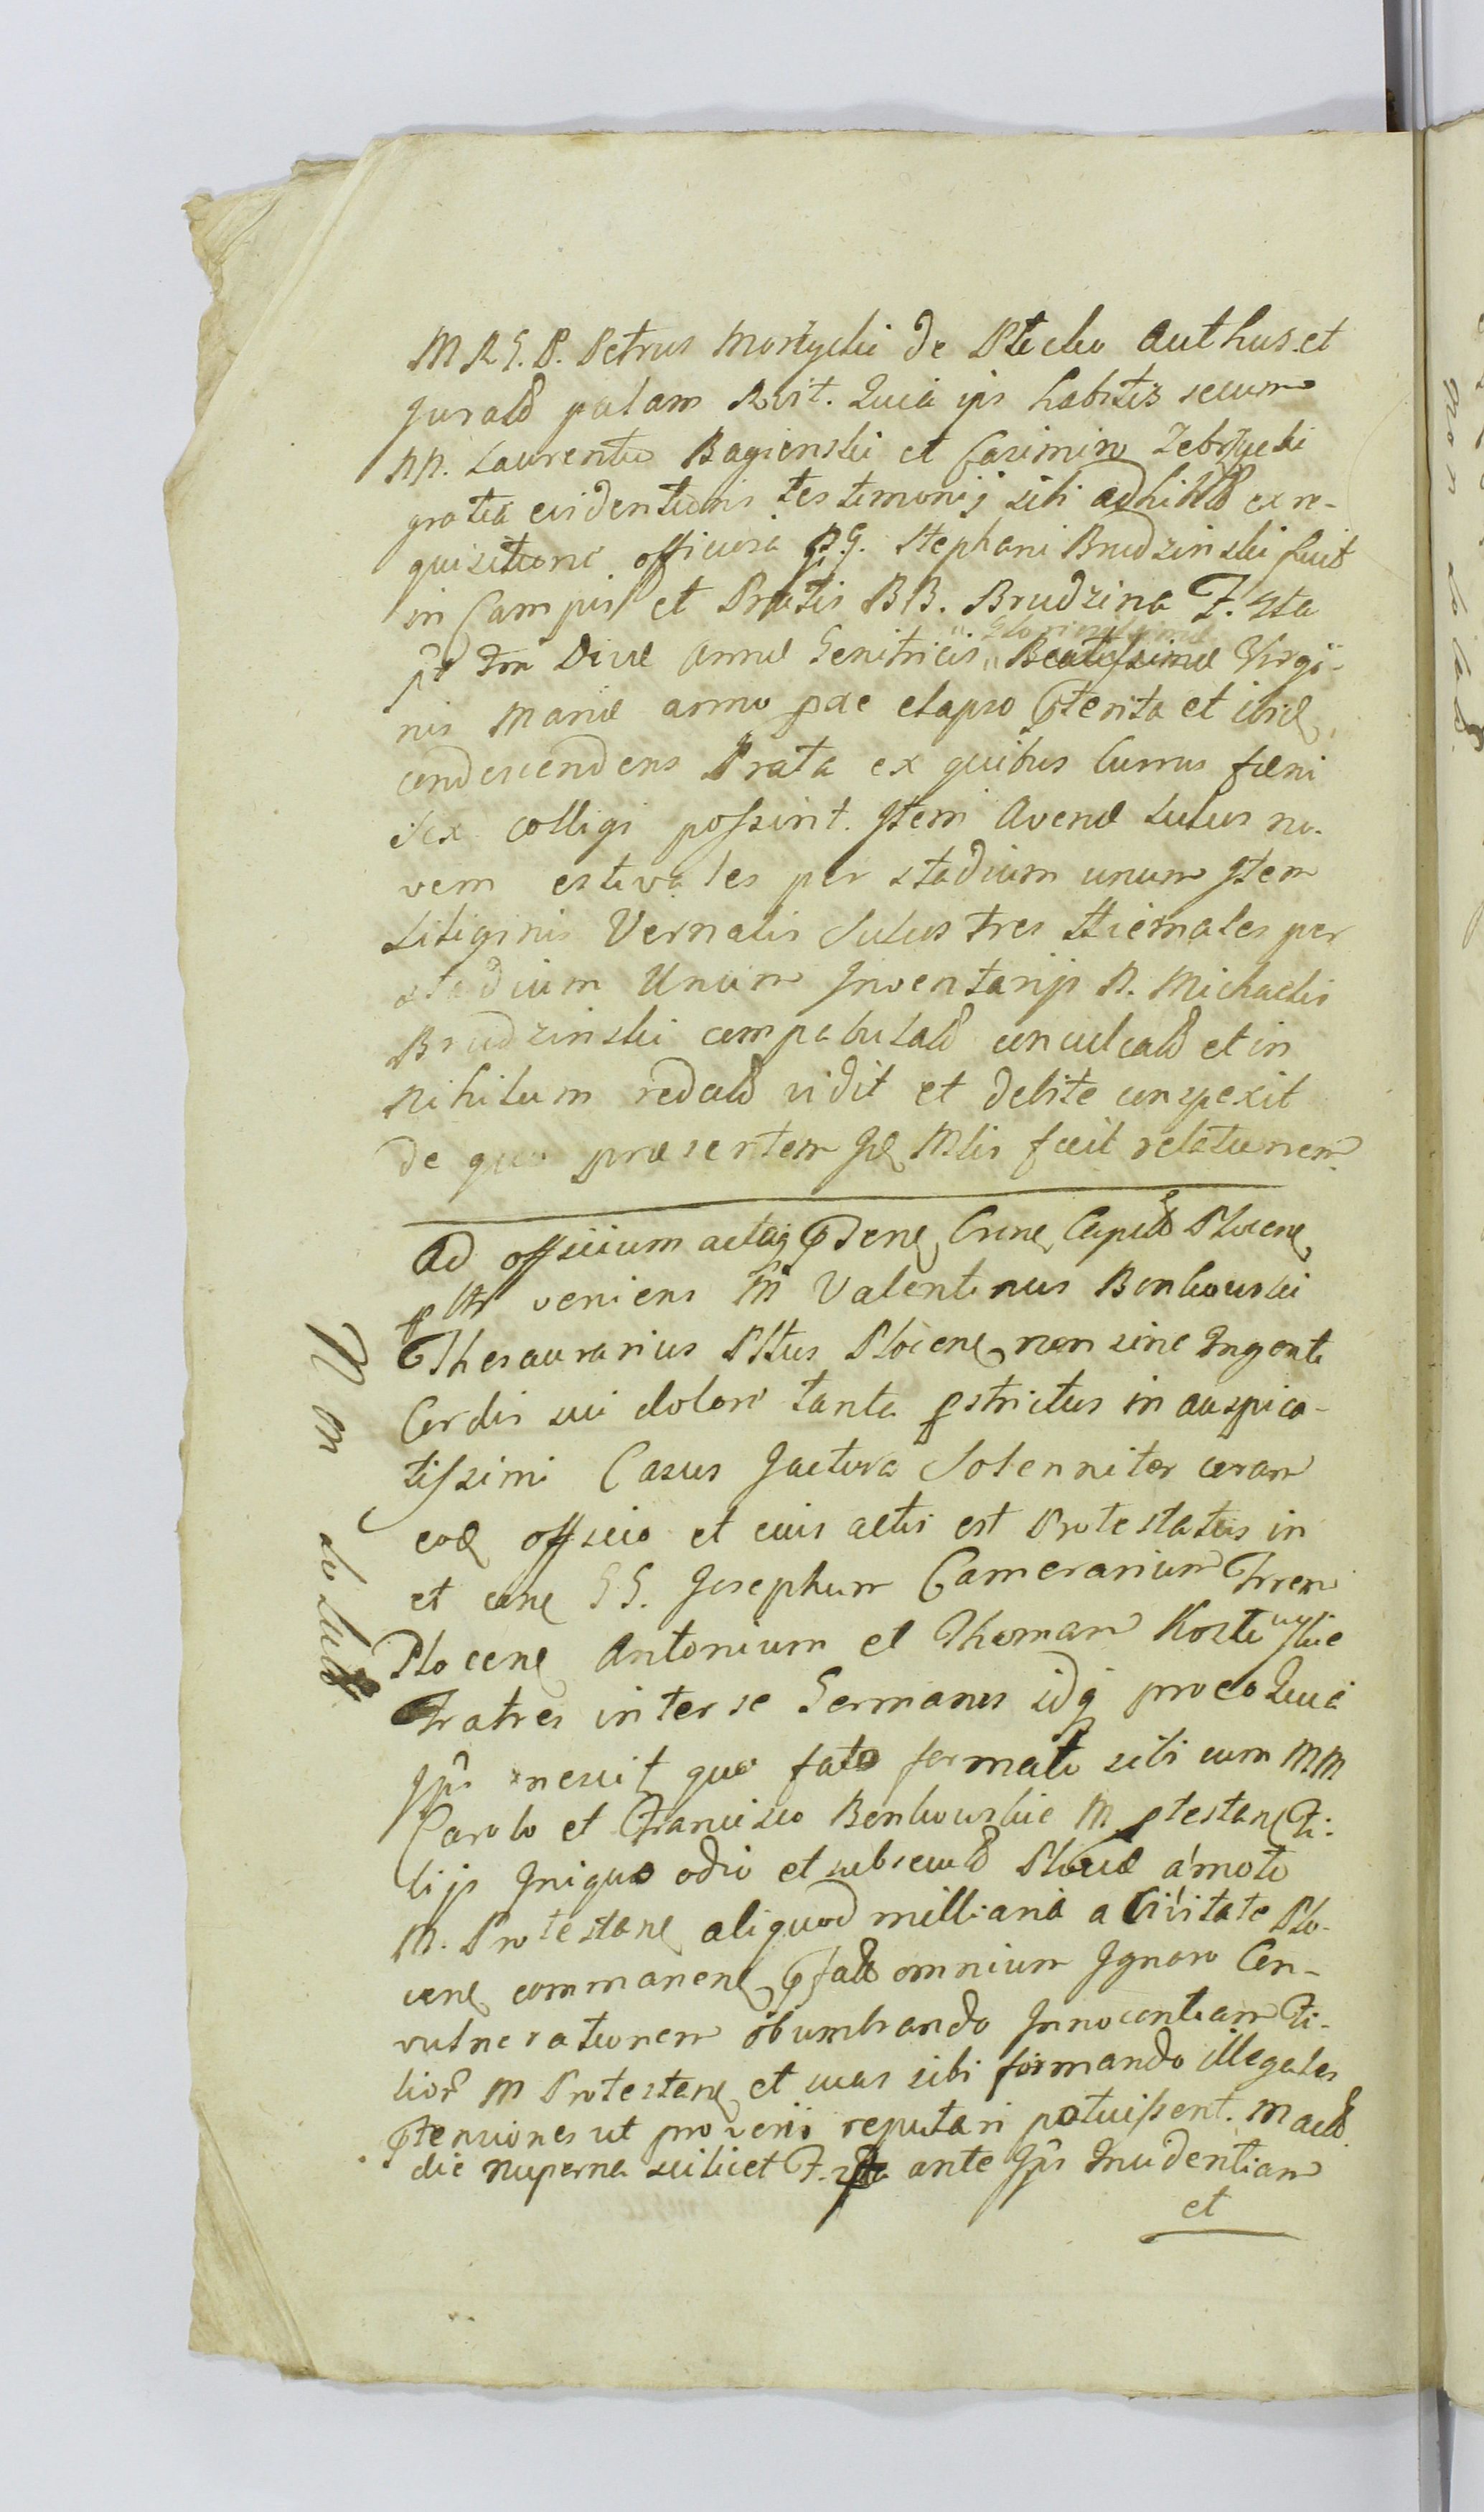 M R G. P. Petrus Mortycki de Plecko Authus. et
Jurald palam Rvit. Quia ips habitis secum
NN. Laurentio Bagienski et Casimiro Zebrzycki
gratia evidentioris testimonij sibi adhibtd ex re-
quisitione officiosa G. Stephani Brudzinski fuit
in Campis et Pratis BB. Brudzina F. 4ta
pt Dive Anne Genitricis Beatissime Virgi-
nis Marie anno elapso et ibid
condescendens Prata ex quibus Currus fæni
sex colligi possint. Jtem Avene Sulcos no-
vem estivales per stadium unum Jtem
Siliginis Vernalis Sulcos tres Hiemales per
stadium Unum Jnventarijs N. Michaelis
Brudzinski compabulatd conculcatd et in
nihilum redactd vidit et debite conspexit
de quo præsentem Mlis fecit relationem
Ad officium actaq Crne Capitd Plocene
pltr veniens M Valentinus Bonkowski
Thesaurarius Pltus Plocene non sine Jngenti
Cordis sui dolore tanta pstrictus in auspica-
tissimi Casus Jactura Solenniter coram
eod officio et eius actis est Protestatus in
et cone GG. Josephum Camerarium Trrem
Plocene Antonium et Thomam Kostewskie
Fratres inter se Germanos idq pro eo Quia
Jpi nescit quo fato formato sibi cum MM
Carolo et Francisco Bonkowskie M ptestan Fi-
lijs Jniquo odio et subsecutd Plocæ amoto
M. Protestane aliquod milliaria a Civitate Plo-
cene commanene omnium Jgnaro Con-
vulnerationem obumbrando Jnnocentiam Fi-
lior M Protestane et suas sibi formando illegales
Ptensiones ut reputari potuissent. Mactd
die nuperna scilicet F. ante Jps Jncidentiam
et
Non solut